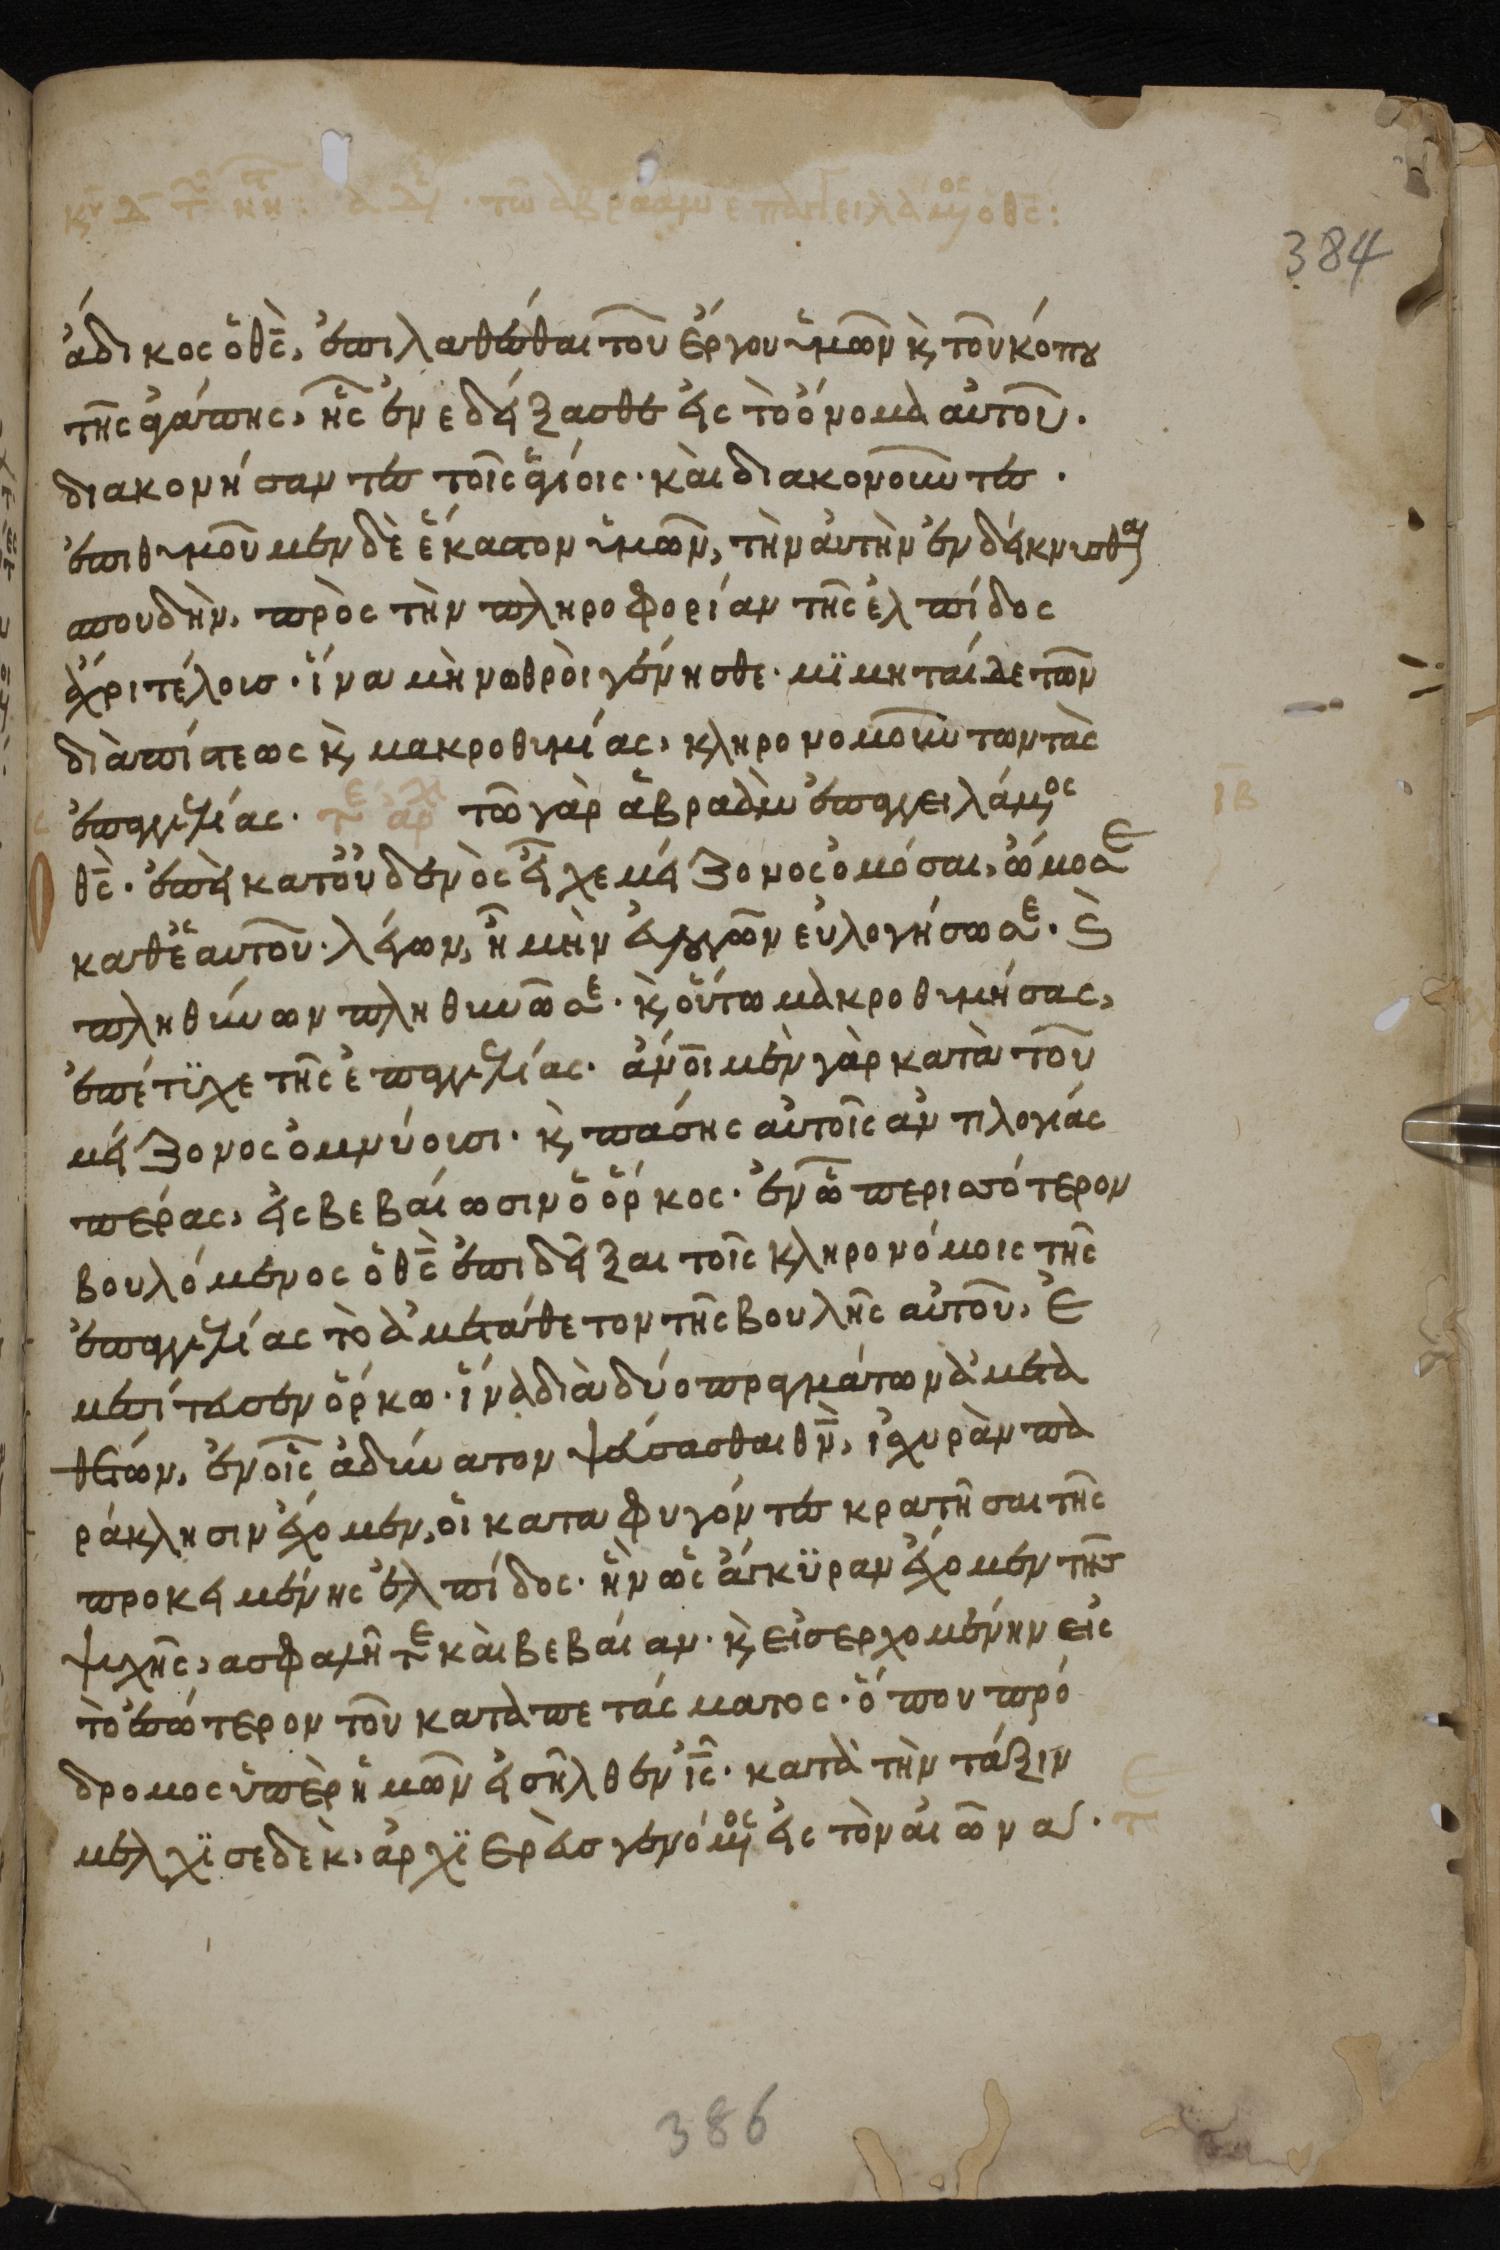 κυ δ τ νη: ἀδελ. τῶ ἀβραὰμ ἐπαγγειλάμενος ὁ θς:
384
ἄδικος ὁ θς, ἐπιλαθέσθαι τοῦ ἔργου ὑμῶν κ, τοῦ κόπου
τῆς ἀγάπης, ἧς ἐνεδείξασθε εἰς τὸ ὄνομα αὐτοῦ.
διακονήσαντες τοῖς ἁγίοις. καὶ διακονοῦντες.
ἐπιθυμοῦμεν δὲ ἕκαστον ὑμῶν, τὴν αὐτὴν ἐνδείκνυσθαι
σπουδὴν, πρὸς τὴν πληροφορίαν τῆς ἐλπίδος
ἄχρι τέλους. ἵνα μὴ νωθροὶ γένησθε. μϊμηταί δε τῶν
διὰ πίστεως κ, μακροθυμίας, κληρονομούντων τὰς
ἐπαγγελίας. τε αρχ τῶ γὰρ ἀβραὰμ ἐπαγγειλάμενος
ιβ
θς. ἐπεὶ κατ' οὐδενὸς εἶχε μείζονος ὀμόσαι, ὤμοσε
καθ' ἑαυτοῦ. λέγων, ἦ μὴν εὐλογῶν εὐλογήσω σε. κ
πληθύνων πληθυνῶ σε. κ, οὕτω μακροθυμήσας,
ἐπέτϋχε τῆς ἐπαγγελίας. ἄνοι μὲν γὰρ κατὰ τοῦ
μείζονος ὀμνύουσι. κ, πάσης αὐτοῖς ἀντιλογίας
πέρας, εἰς βεβαίωσιν ὁ ὅρκος. ἐν ὧ περισσότερον
βουλόμενος ὁ θς ἐπιδεῖξαι τοῖς κληρονόμοις τῆς
ἐπαγγελίας τὸ ἀμετάθετον τῆς βουλῆς αὐτοῦ, ἐ
μεσίτευσεν ὅρκω. ἵνα διὰ δύο πραγμάτων ἀμετα
θέτων, ἐν οἷς ἀδύνατον ψεύσασθαι θν, ἰσχυρὰν πα
ράκλησιν ἔχομεν, οἱ καταφυγόντες κρατῆσαι τῆς
προκειμένης ἐλπίδος. ἣν ὡς ἄγκϋραν ἔχομεν τῆς
ψυχῆς, ασφαλῆ τε καὶ βεβαίαν. κ, εἰσερχομένην εἰς
τὸ ἐσώτερον τοῦ καταπετάσματος. ὅπου πρό
δρομος ὑπὲρ ἡμῶν εἰσῆλθεν ἰς. κατὰ τὴν τάξιν
μελχϊσεδὲκ, ἀρχϊερεὺς γενόμενος εἰς τὸν αἰῶνα. τε
386